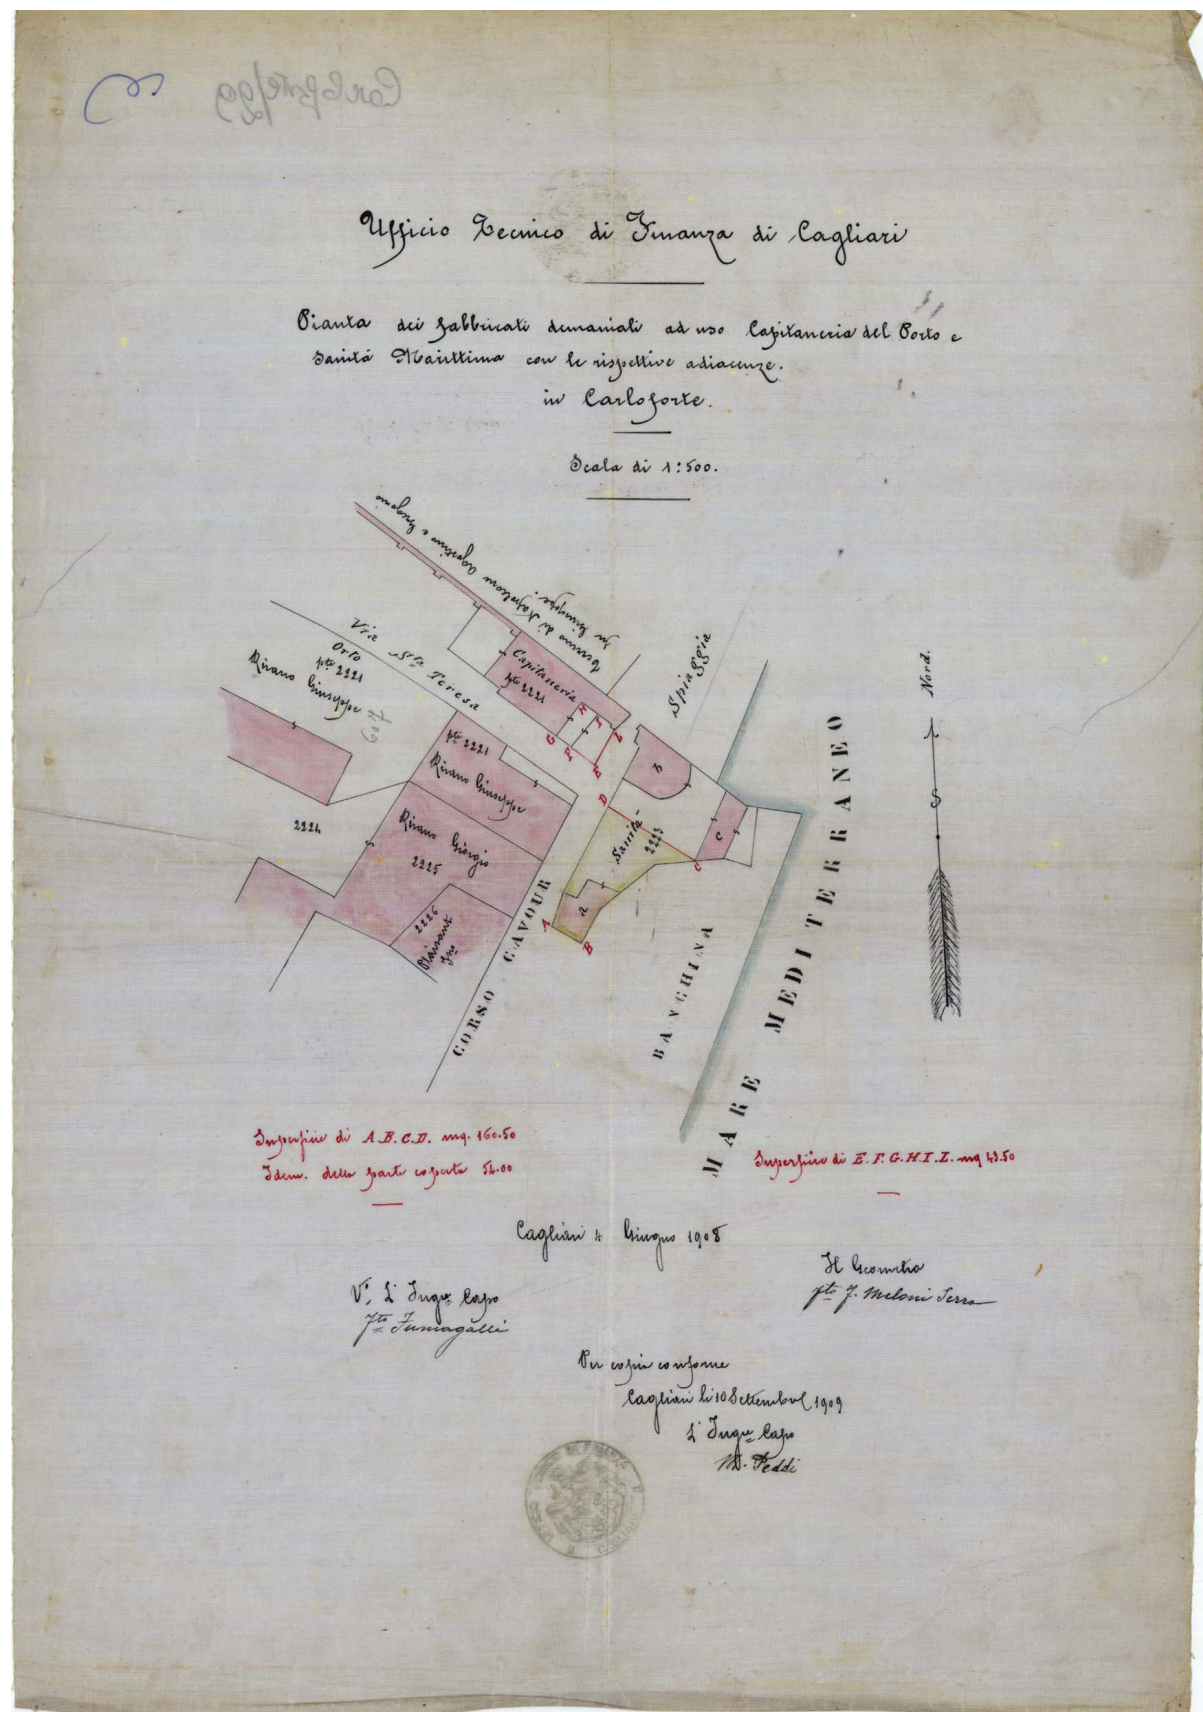 Carloforte/29
Ufficio Tecnico di Finanza di Cagliari
Pianta dei fabbricati demaniali ad uso Capitaneria del Porto e
Sanitá Marittima con le rispettive adiacenze.
in Carloforte.
Scala di 1:500.
terreno di Napoleone Agostino e
fu Giuseppe.
Via Sta Teresa
Orto
pte 2221
Rivano Giuseppe
Capitaneria
pte 2221
Spiaggia
Nord.
G
H
F
I
E
L
pte 2221
Rivano Giuseppe
b
D
2224
Rivano Giorgio
2225
Sanitá
2223
c
C
2226
a
A
B
CORSO CAVOUR
BANCHINA
MARE MEDITERRANEO
S
Superficie di A.B.C.D. mq. 160.50
Idem. della parte coperta 54.00
Superficie di E.F.G.H.I.L. mq 43.50
Cagliari 4 Giugno 1908
V° L'Ingre Capo
Fto Fumagalli
Il Geometra
fto F. Meloni Serra
Per copia conforme
Cagliari li 10 Settembre 1909
L'Ingre Capo
M. Peddi